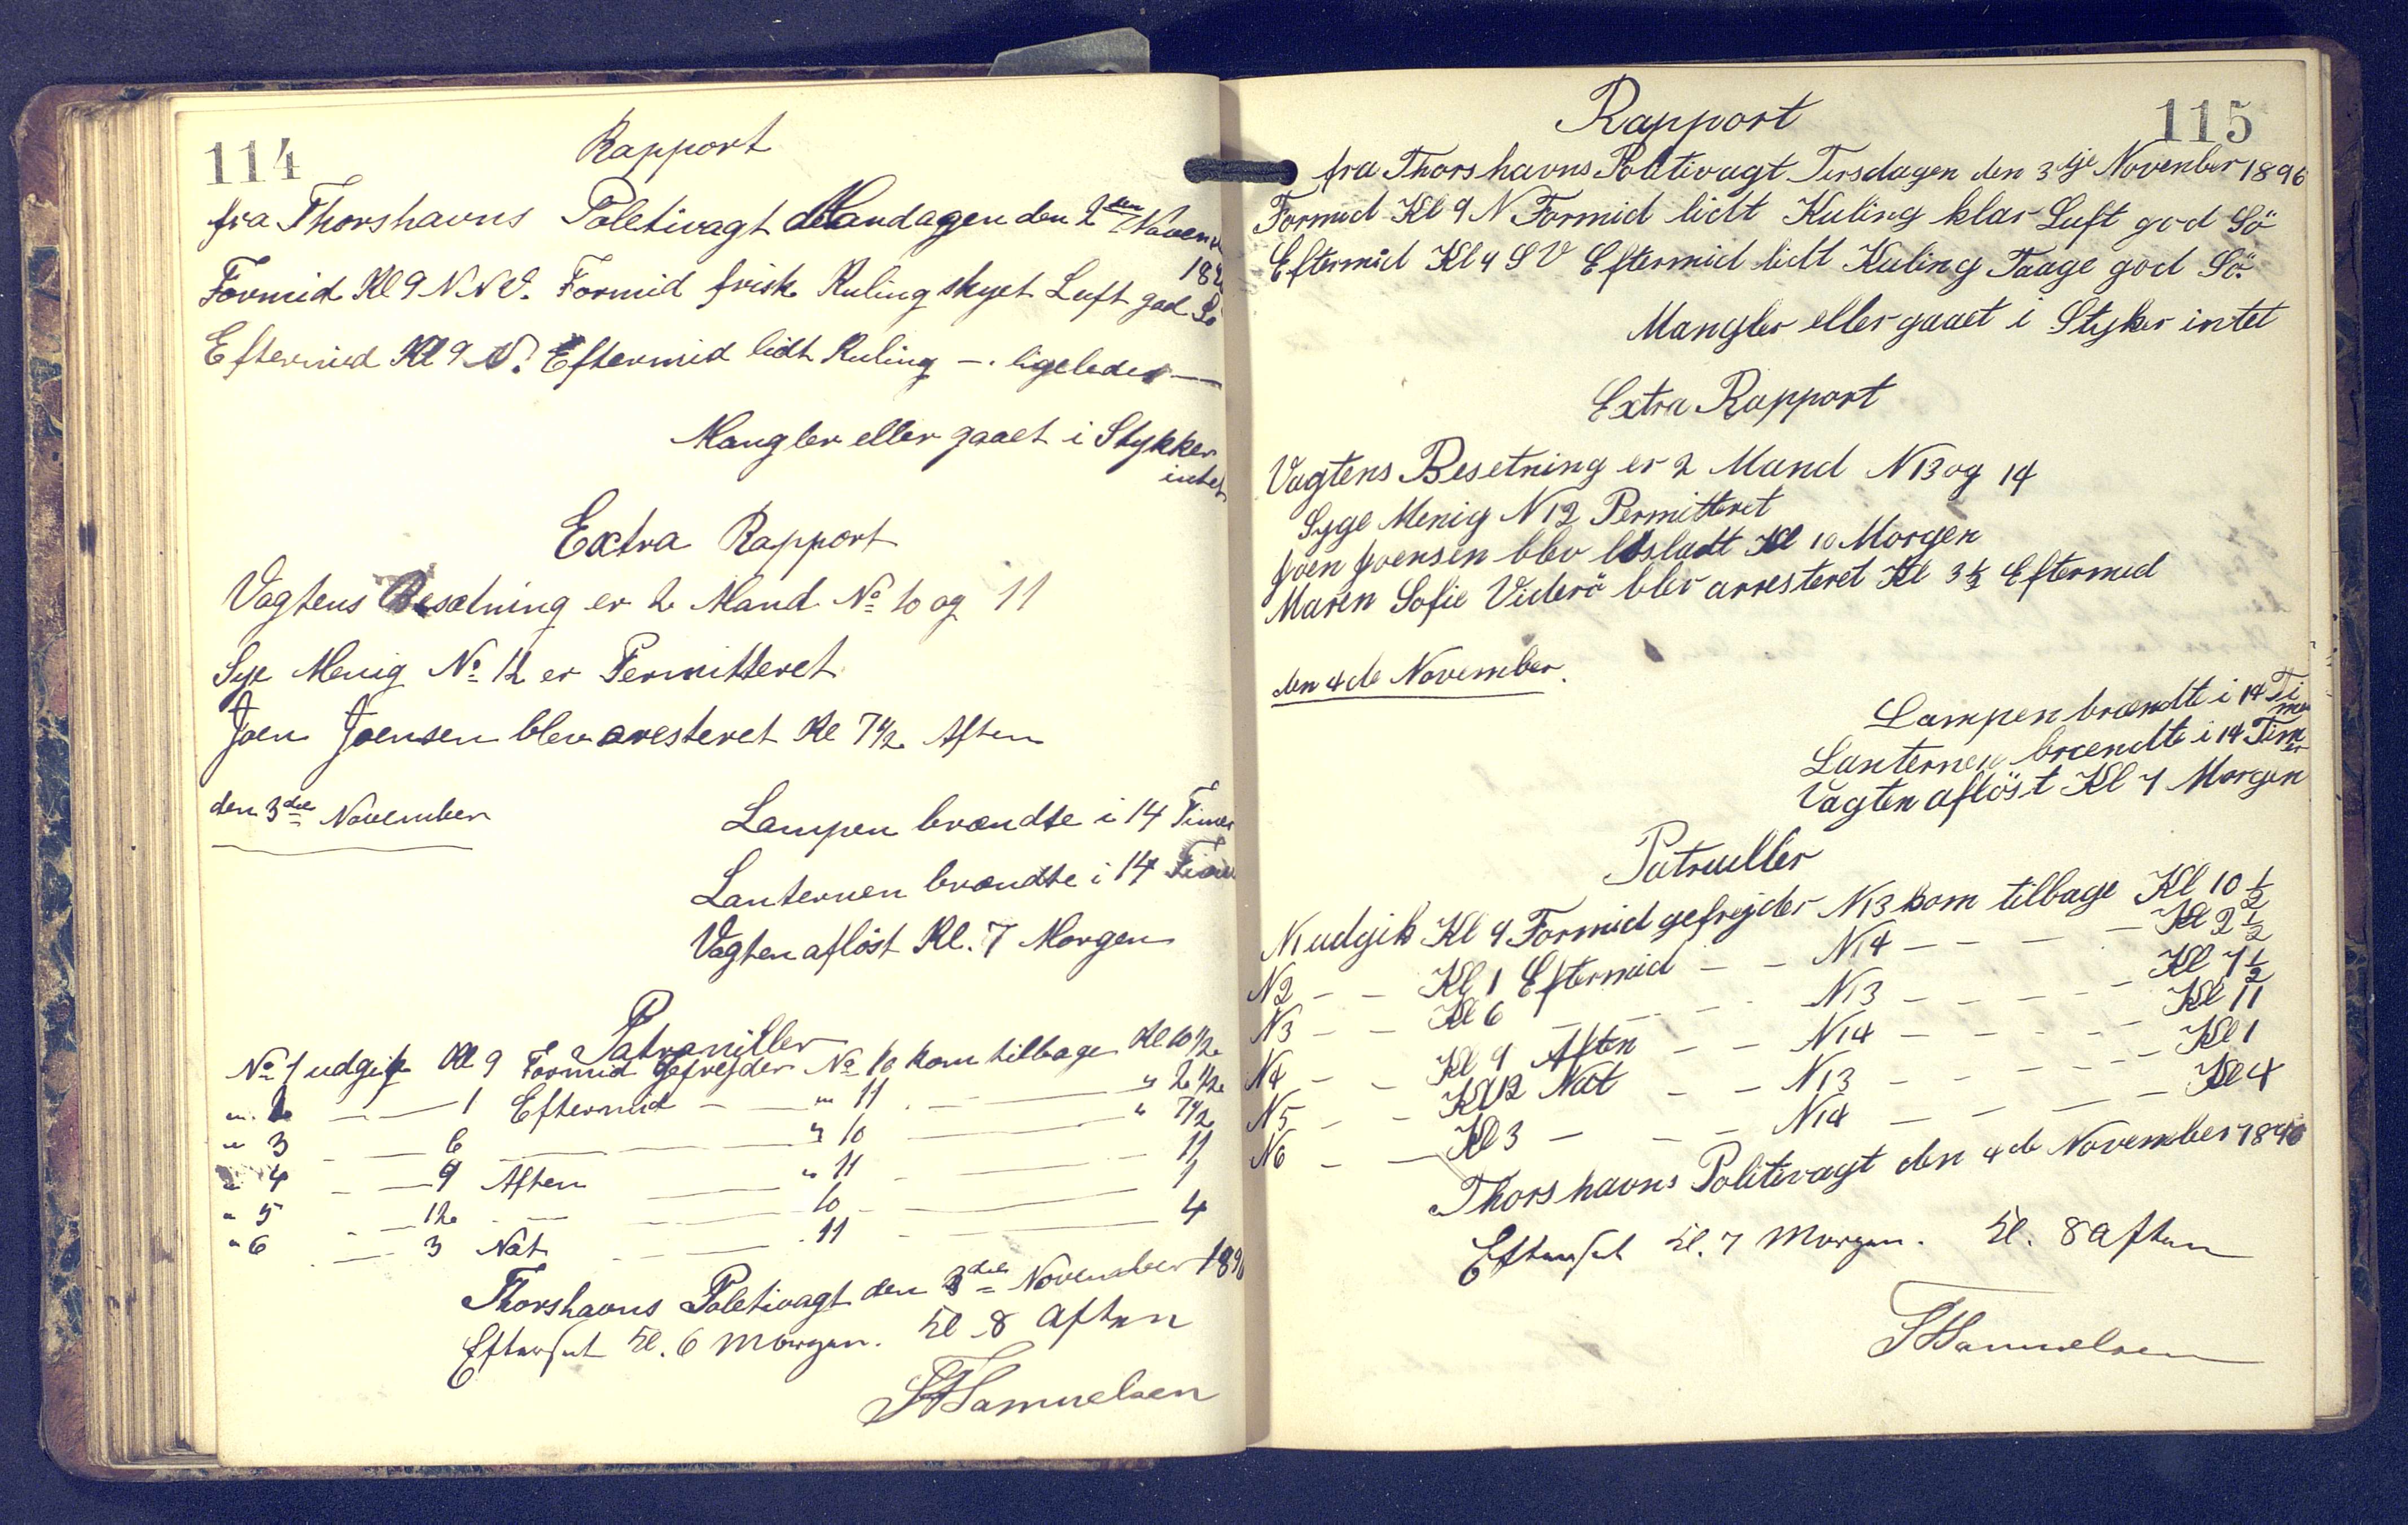 114
Rapport
fra Thorshavns Poletivagt Mandagen den 2den Novem
189
Formid Kl 9 N.N.V. Formid frisk Kuling skyet Luft god Sö
Eftermid Kl 9 N. Eftermid lidt Kuling —. ligeledes —
Mangler eller gaaet i Stykker
intet
Extra Rapport
Vagtens Besætning er 2 Mand No 10 og 11
Syge Menig No 12 er Permitteret
Joen Joensen blev aresteret Kl 7 1/2 Aften
den 3die November
Lampen brændte i 14 Timer
Lanternen brændte i 14 Timer
Vagten aflöst Kl. 7 Morgen
Patrouiller
No 1 udgik Kl 9 Formid Gefrejder No 10 kom tilbage Kl 10 1/2
" 2 — — 1 Eftermid — " 11 — " 2 1/2
" 3 — 6 — " 10 — " 7 1/2
" 4 — 9 Aften — " 11 — 11
" 5 — 12 — — 10 — 1
" 6 — 3 Nat — 11 — 4
Thorshavns Poletivagt den 3die November 1896
Efterset Kl. 6 Morgen. Kl. 8 Aften
Samuelsen
115
Rapport
fra Thorshavns Politivagt Tirsdagen den 3dje November 1896
Formid Kl 9 N Formid lidt Kuling klar Luft god Sö
Eftermid Kl 4 SV Eftermid lidt Kuling Taage god Sö.
Mangler eller gaaet i Styker intet
Extra Rapport
Vagtens Besetning er 2 Mand N 13 og 14
Syge Menig N 12 Permitteret
Joen Joensen blev lösladt Kl 10 Morgen
Maren Sofie Viderö blev arresteret Kl 3 1/2 Eftermed
den 4de November.
Lampen brændte i 14 Timer
Lanternen brændte i 14 Timer
Vagten aflöst Kl 7 Morgen
Patruller
N1 udgik Kl 9 Formid gefrejder N13 kom tilbage Kl 10 1/2
N2 — — Kl 1 Eftermid — — N14 — — — — Kl 2 1/2
N3 — — Kl 6 — — — N13 — — — — Kl 7 1/2
N4 — — Kl 9 Aften — — N14 — — — — Kl 11
N5 — — Kl 12 Nat — — N13 — — — — Kl 1
N6 — — Kl 3 — — — N14 — — — — Kl 4
Thorshavns Politivagt den 4de November 1896
Efterset Kl. 7 Morgen. Kl. 8 Aften
Samuelsen